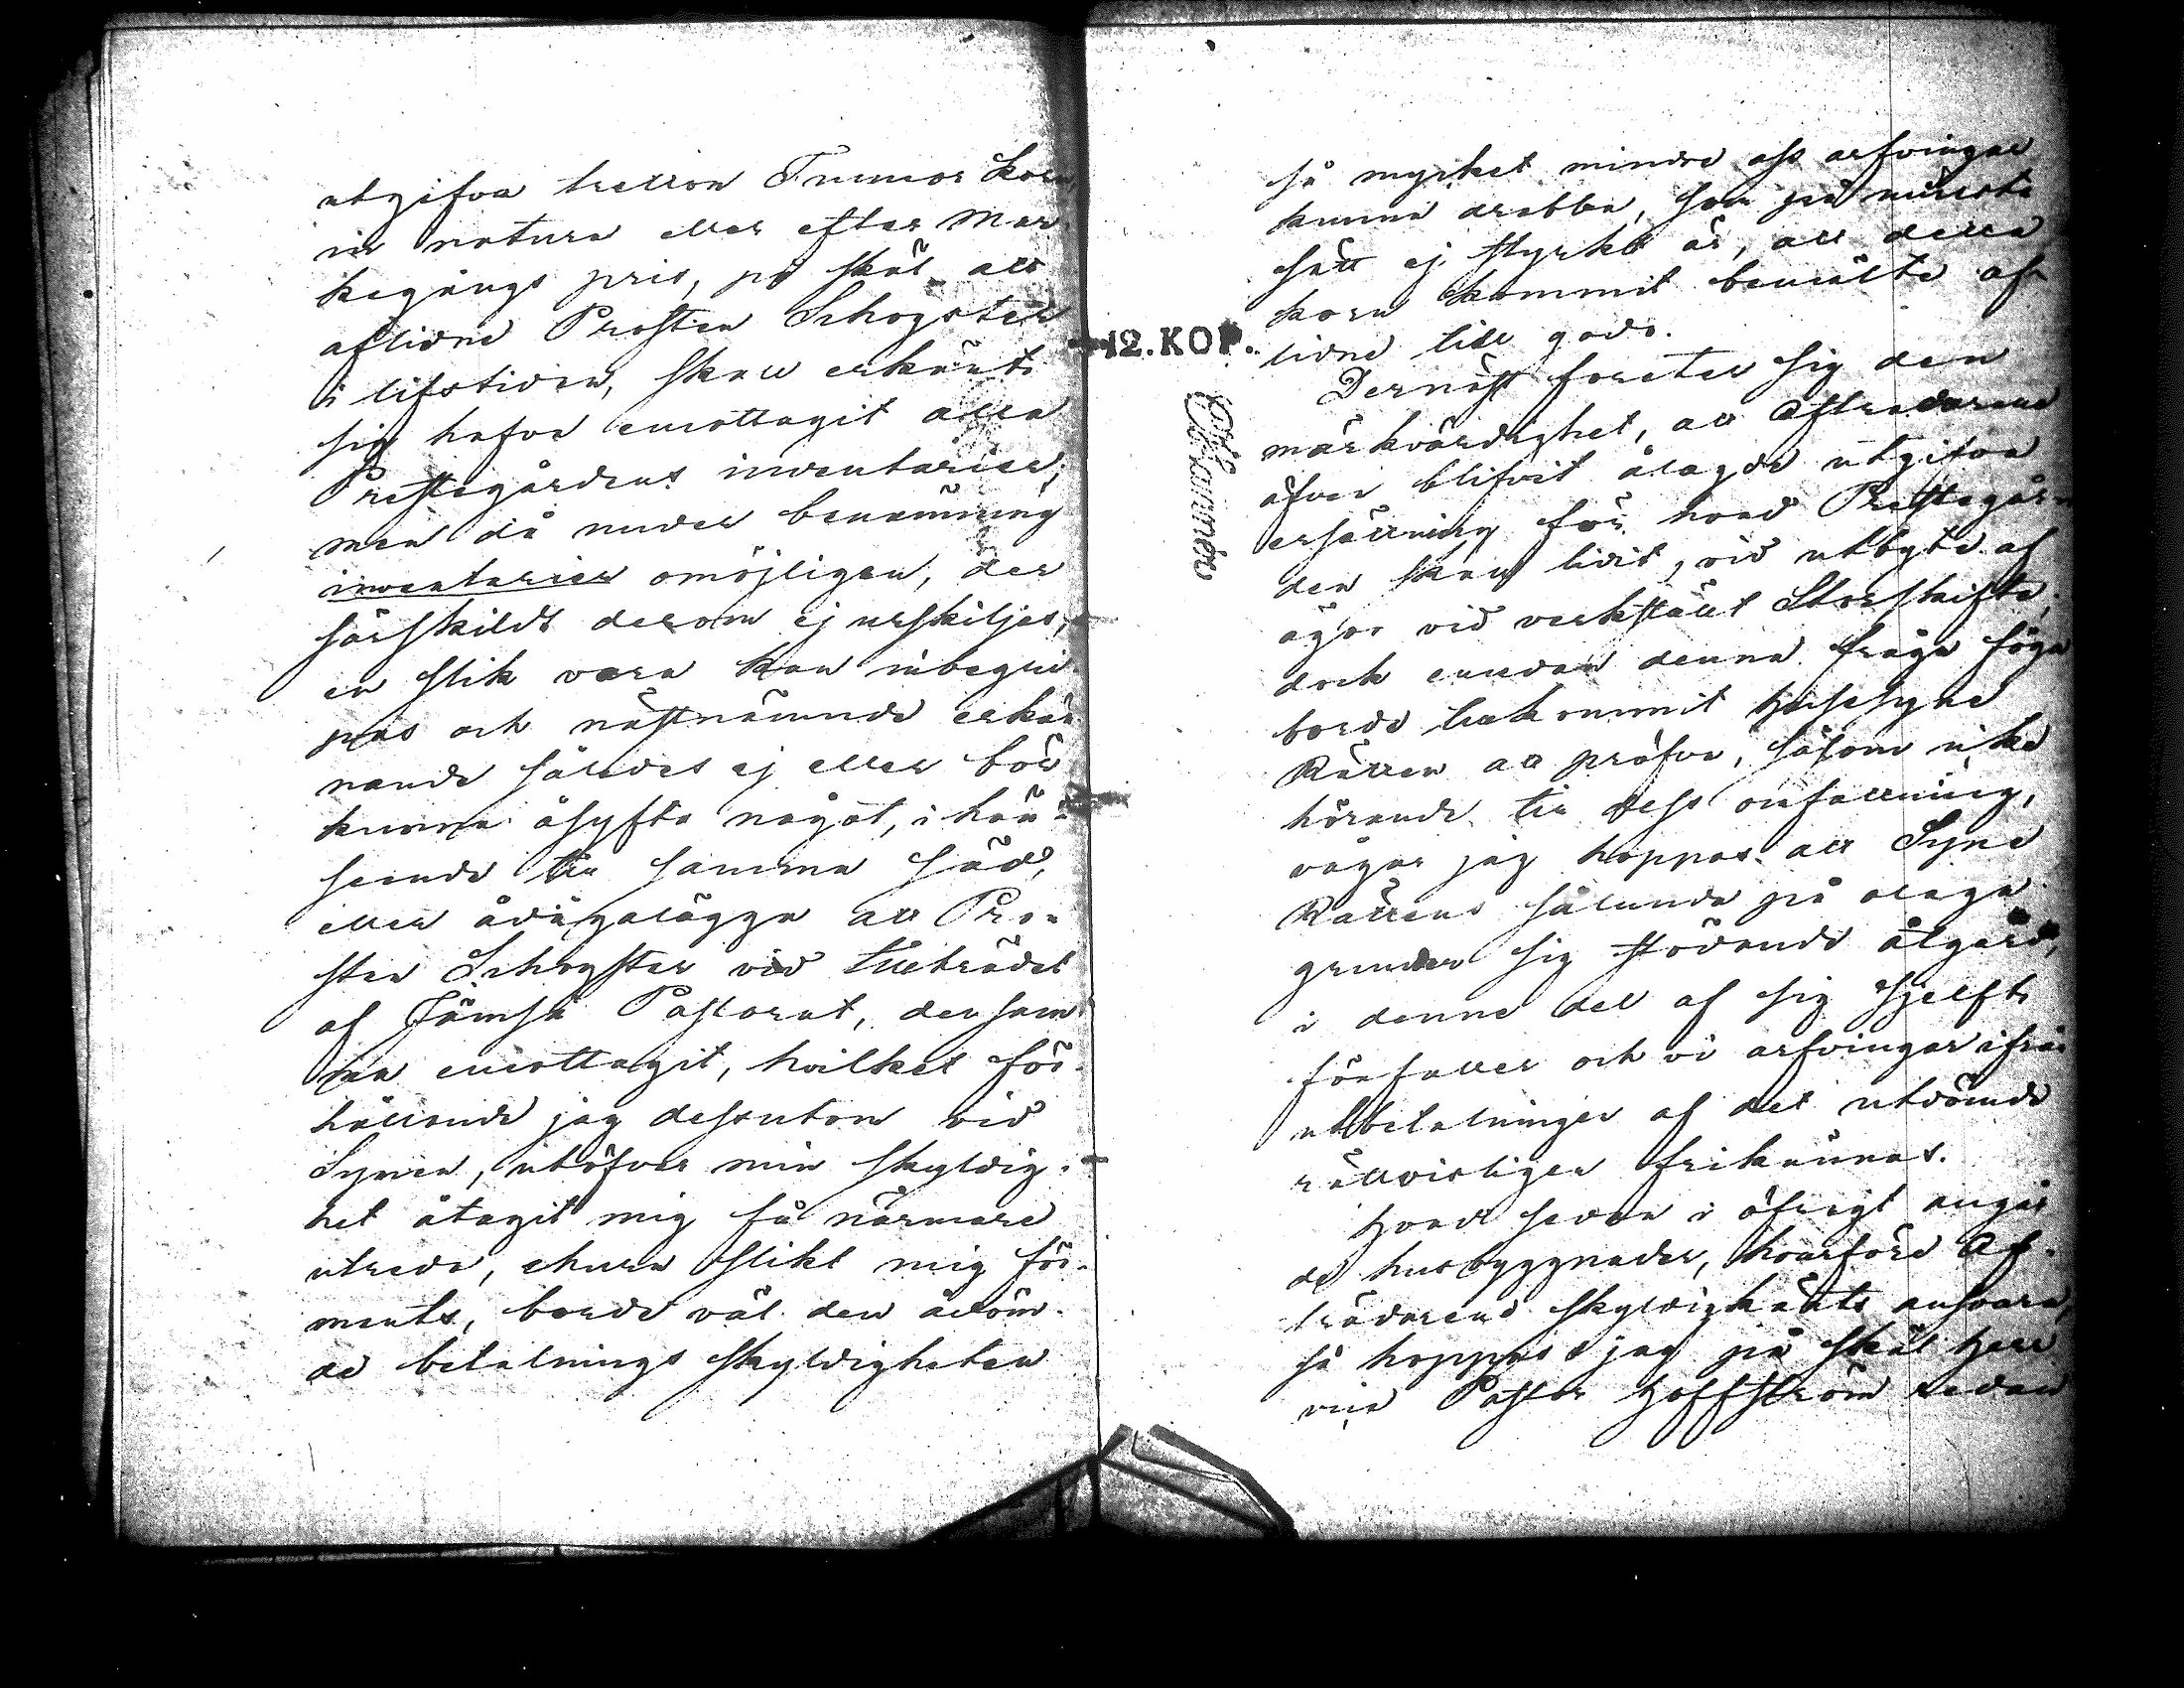 utgifva tretton Tunnor Korn
in natura eller efter Mar-
kegångs pris, på skäl att
aflidne Prosten Schogster
i lifstiden, skall erkänt
sig hafva emottagit alla
Prestegårdens inventarier;
men då under benämning
inventarier omöjligen, der
särskildt derom ej urskiljes,
en slik vara kan inbegri-
pas och nästnämnde erkän-
nande således ej eller bör
kunna åsyfta något, i hän-
seende till samma säd,
eller ådagalägga att Pro-
sten Schogster vid tillträdet
af Jämsä Pastorat, densam-
ma emottagit, hvilket för-
hållande jag dessutom vid
Synen, utöfver min skyldig-
het åtagit mig få närmare
utreda, ehuru slikt mig för-
ments, borde väl den ådöm-
de betalnings skyldigheten
så mycket mindre oss arfvingar
kunna drabba, som på minsta
sätt ej styrkt är, att detta
korn kommit bemälte af-
lidne till godo.
12. KOP.
Dernäst foreter sig den
märkvärdighet, att Afträdarene
äfven blifvit ålagde utgifva
ersättning för hvad Prestegår-
den skall lidit, vid utbyte af
ägor vid verkstäldt Storskifte;
dock emedan denna fråga föga
borde tillkommit Husesyne
Rätten att pröfva, såsom icke
hörande till dess omfattning,
vågar jag hoppas att Syne
Rättens sålunda på olaga
grunder sig stödande åtgärd,
i denne del af sig sjelft
förfaller och vi arfvingar ifrån
utbetalningen af det utdömde
rättvisligen frikännas.
Hvad sedan i öfrigt angår
de husbyggnader, hvarföre Af-
trädarene skyldigkänts ansvara,
så hoppas jag på skäl Herr
vice Pastor Hoffström redan